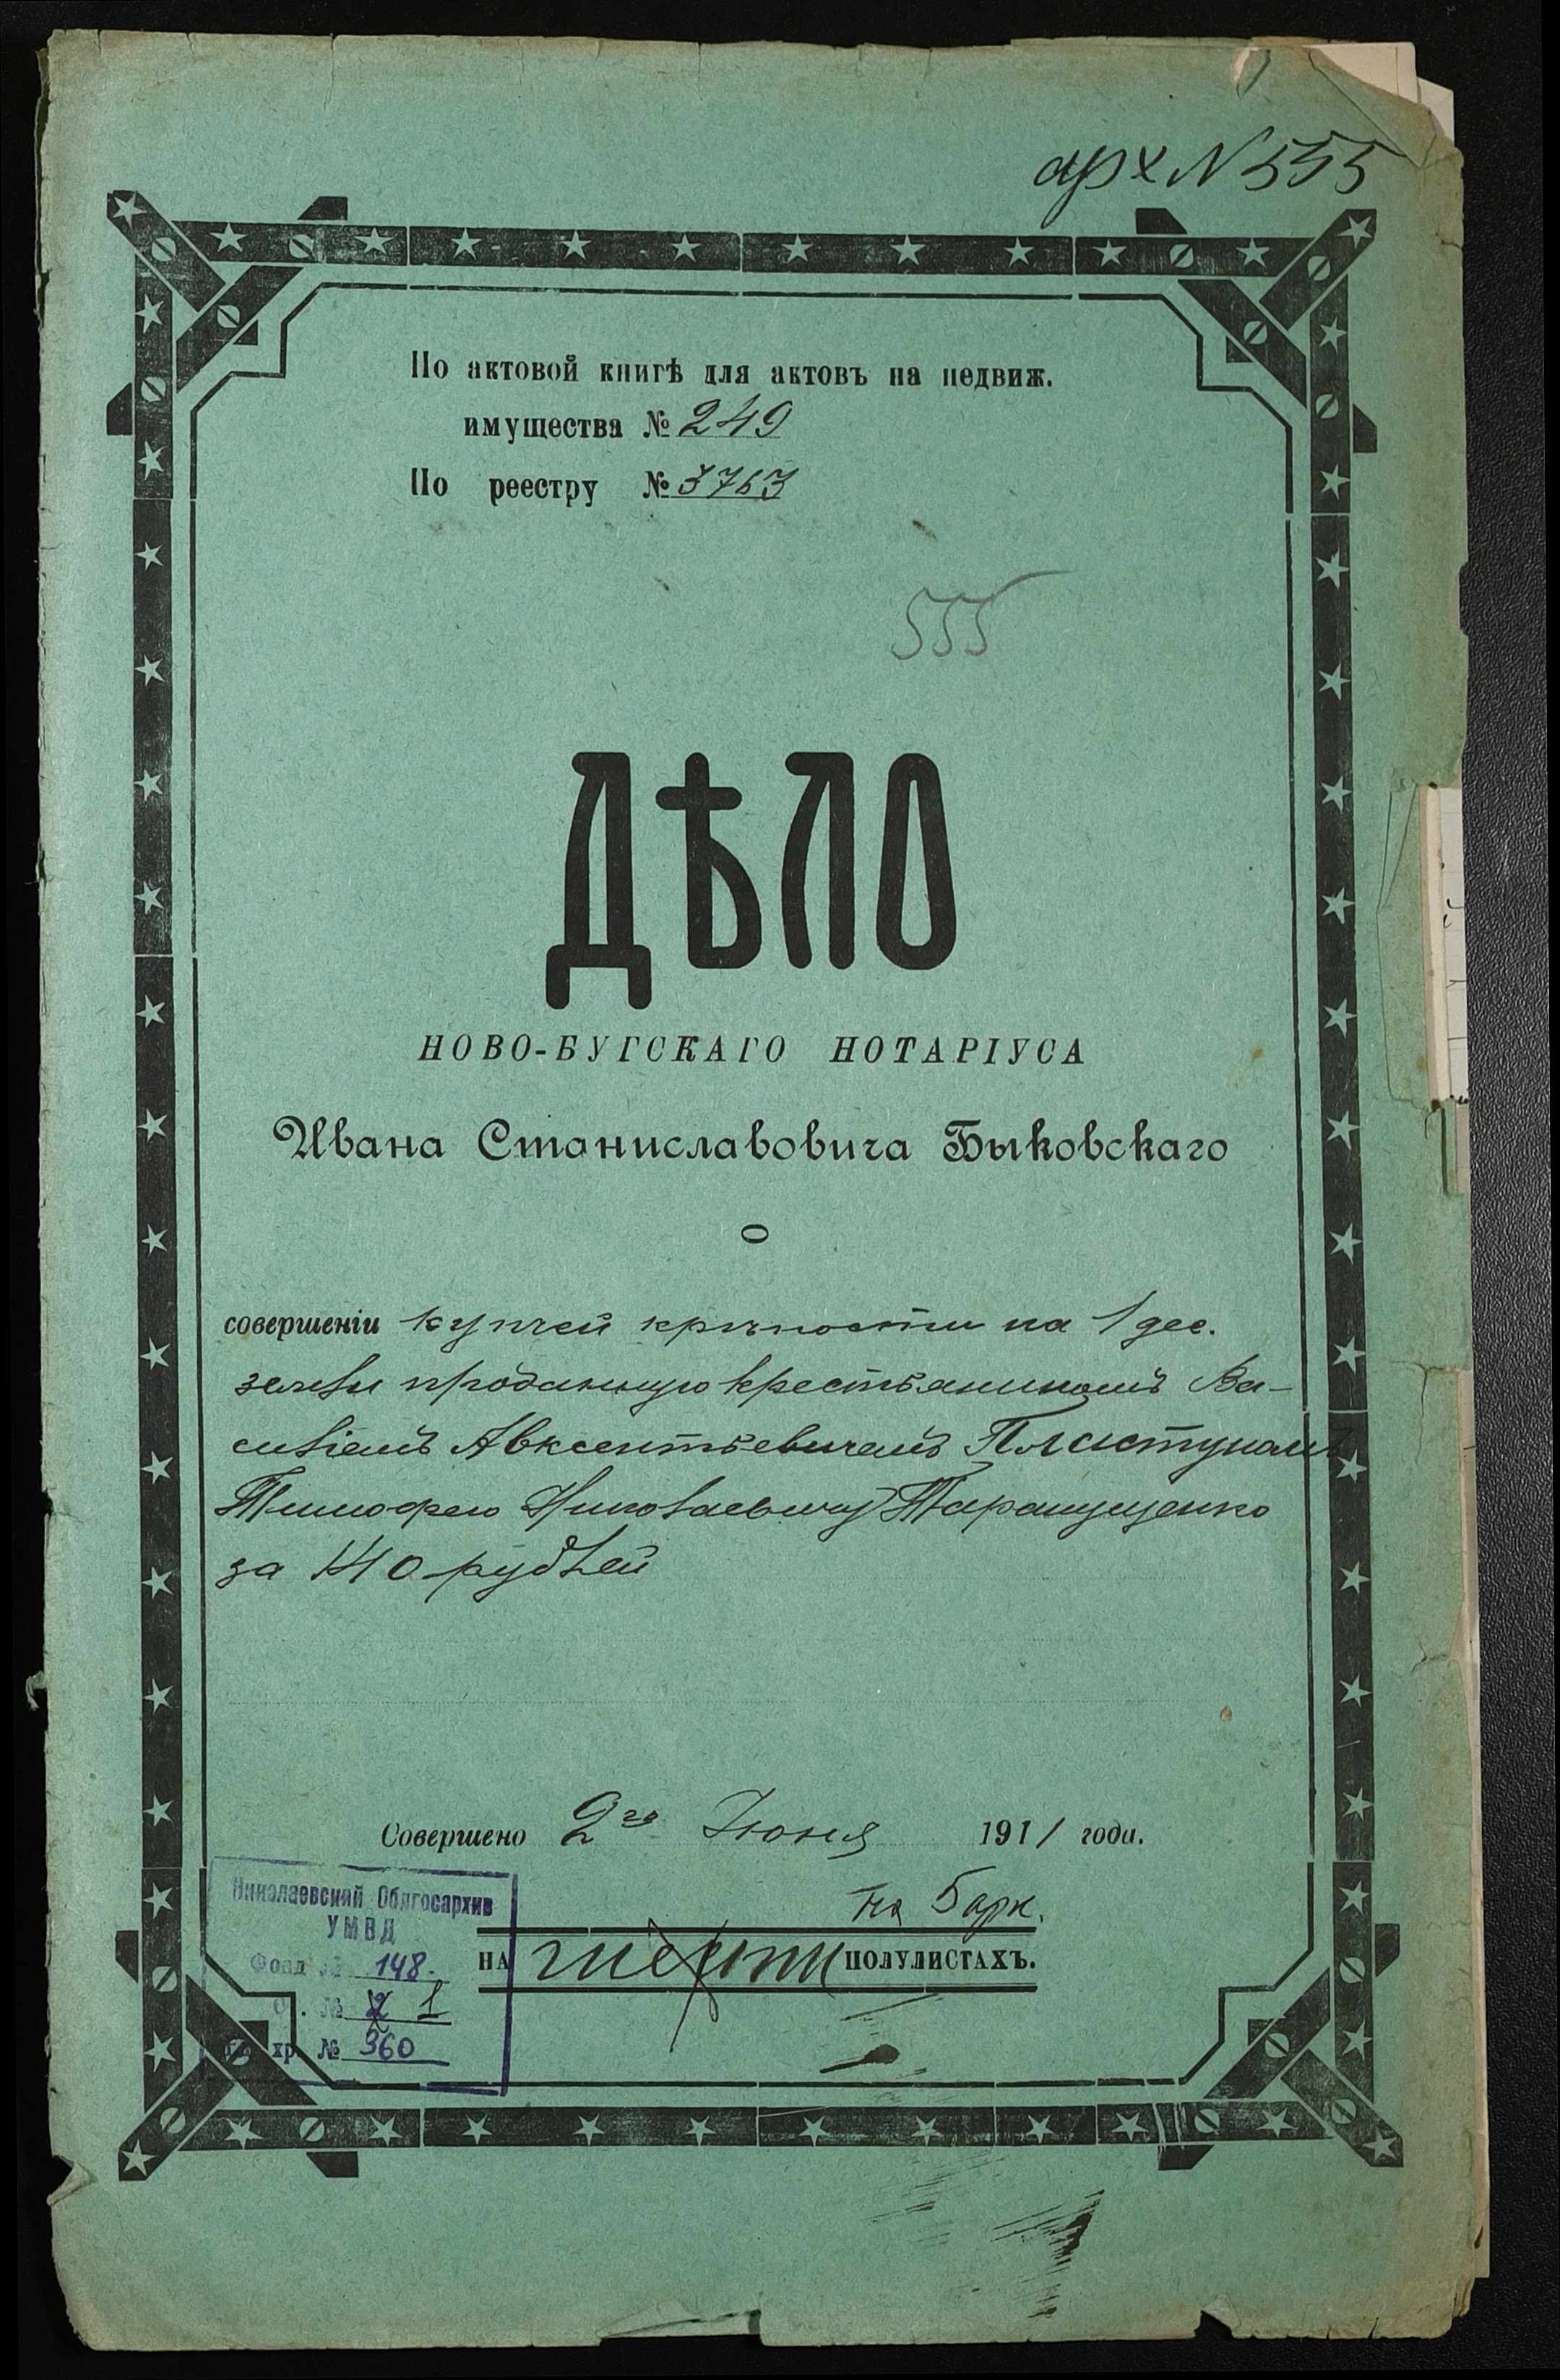 арх N 555
По актовой книгѣ для актовъ на недвиж.
имущества № 249
По реестру № 3763
555
ДѢЛО
НОВО-БУГСКАГО НОТАРІУСА
Ивана Станиславовича Быковскаго
О
совершеніи купчей крѣпости на 1 дес.
земли проданную крестьяниномъ Ва-
силіемъ Авксентьевичемъ Пластуномъ
Тимофею Николаевичу Таранущенко
за 140 рублей
Совершено 2го Июня 1911 года.
на 5 арк.
НА ПОЛУЛИСТАХЪ.
Николаевский Облгосархив
УМВД
Фонд № 148.
Оп. № 2 1
Ед. хр. № 360